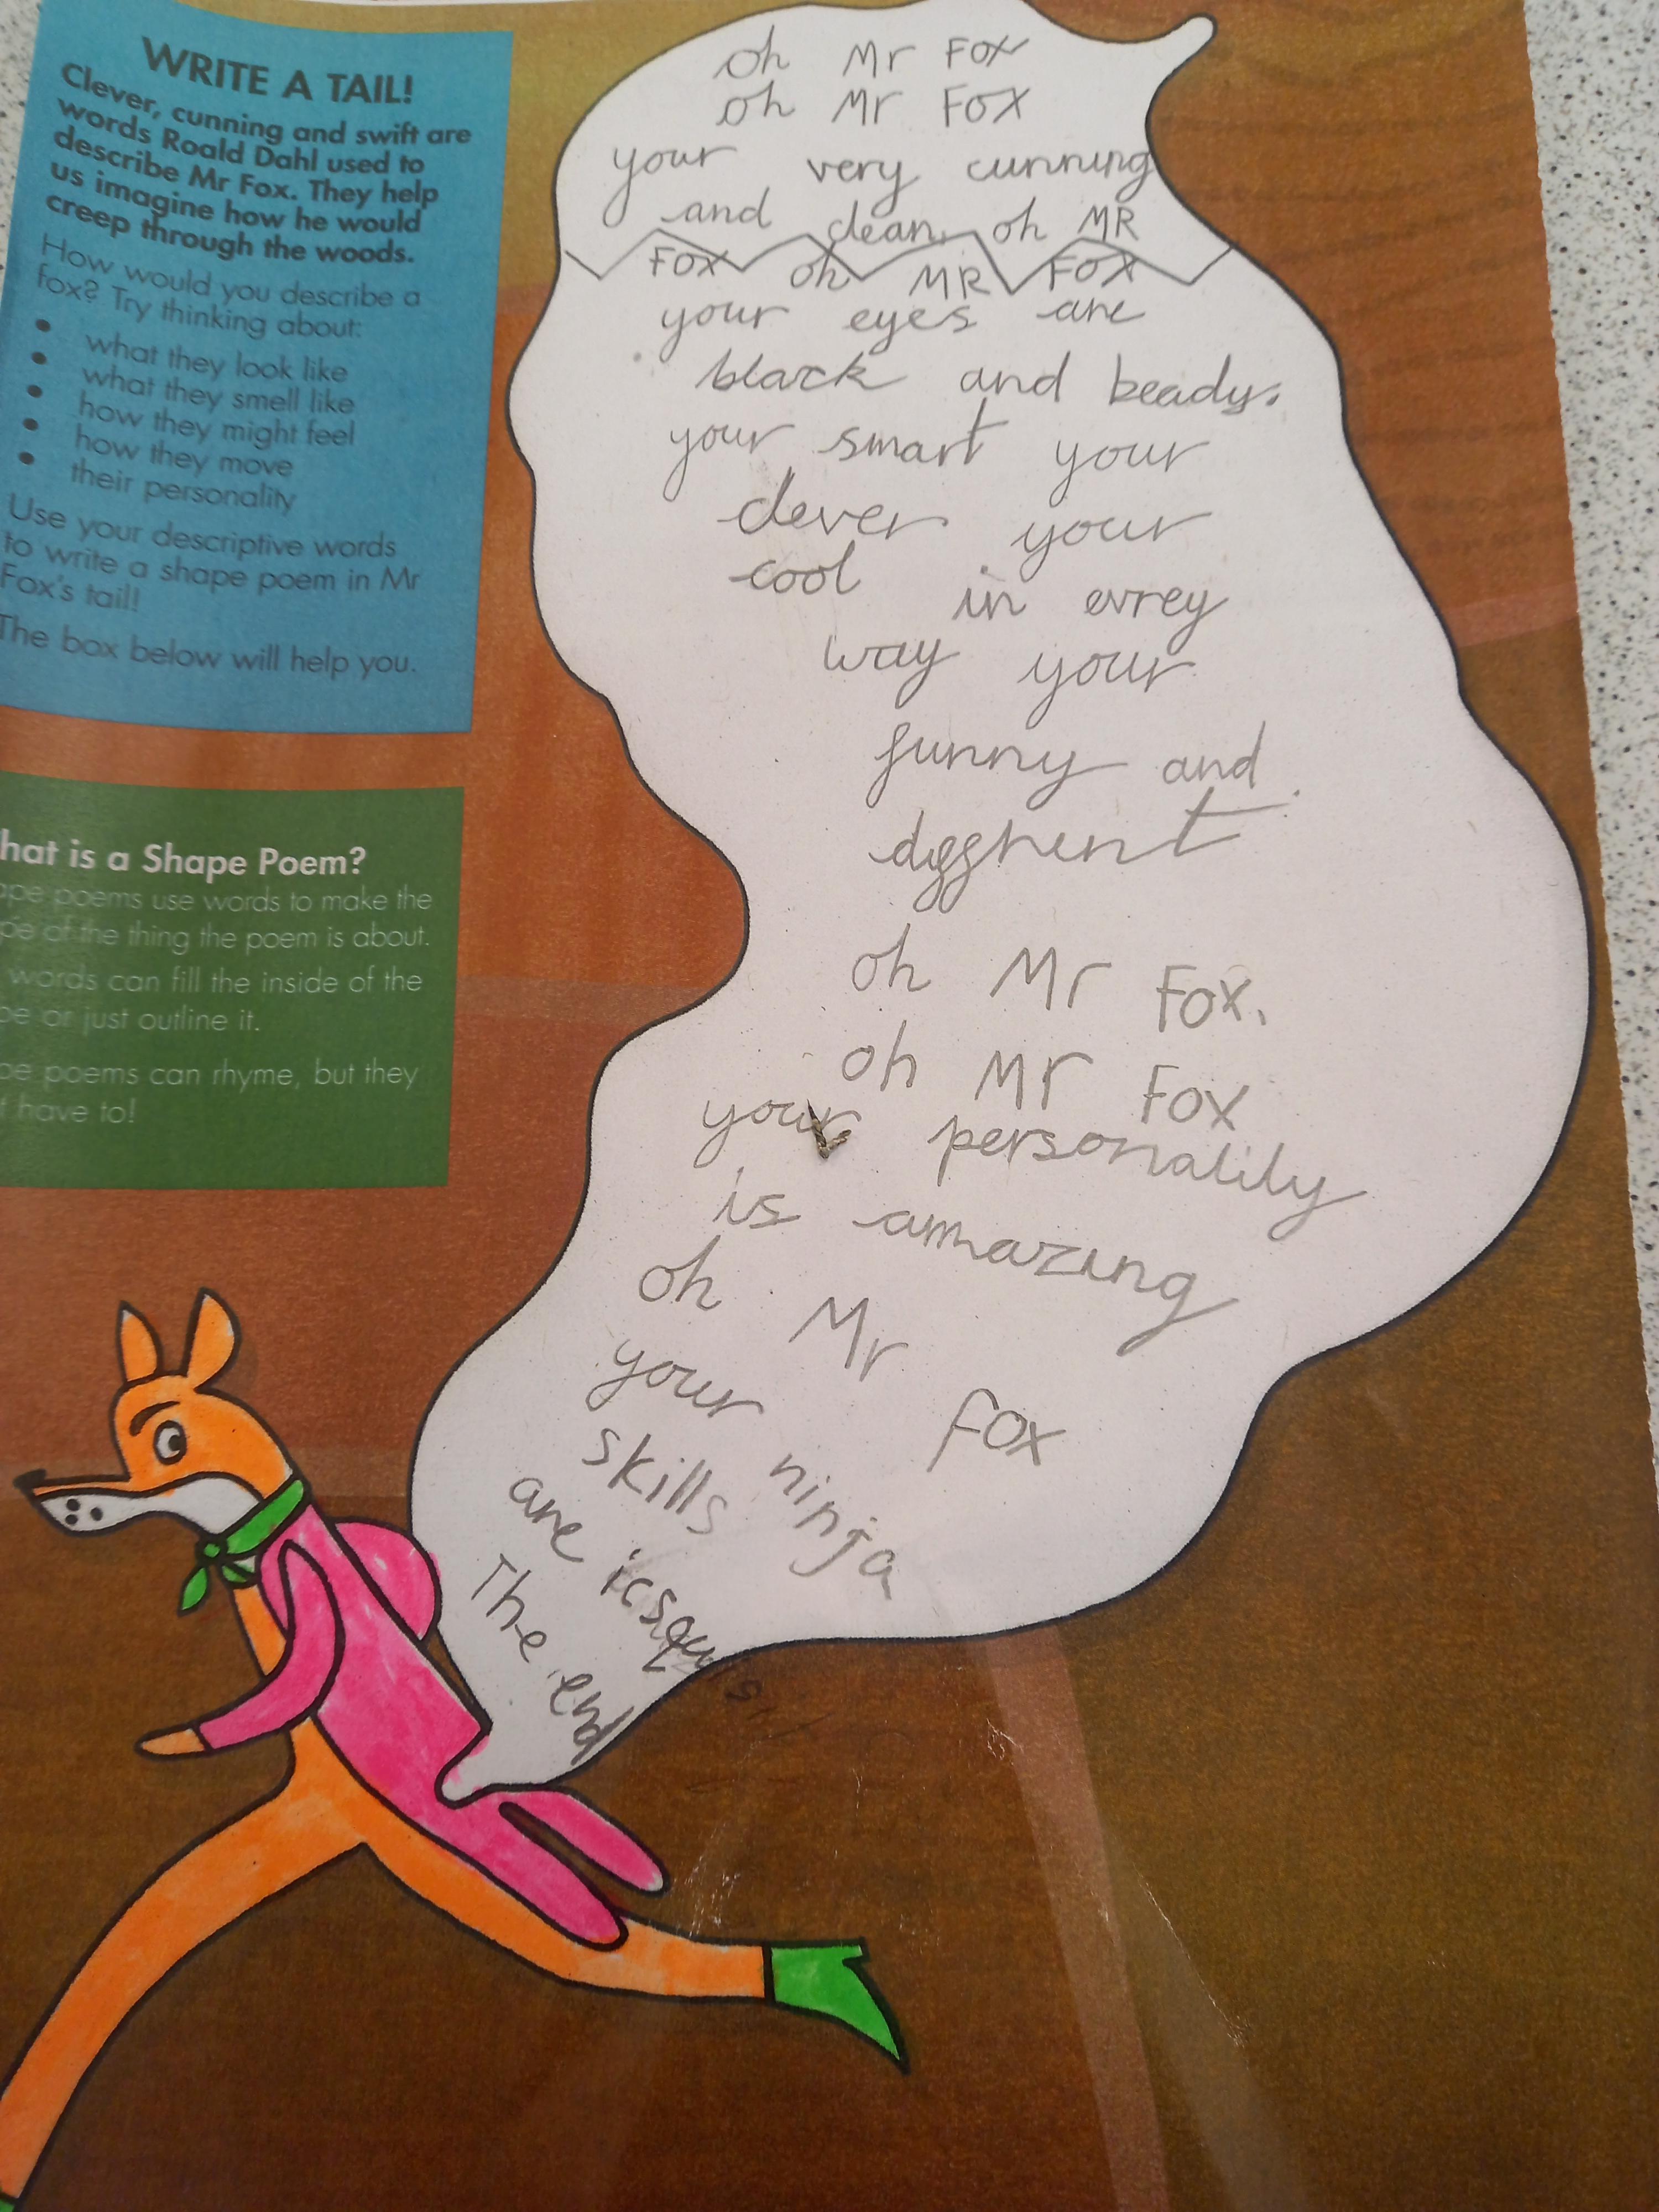 WRITE A TAIL!
Clever, cunning and swift are
words Roald Dahl used to
describe Mr Fox. They help
us imagine how he would
creep through the woods.
How would you describe a
fox? Try thinking about:
• what they look like
• what they smell like
• how they might feel
• how they move
• their personality
Use your descriptive words
to write a shape poem in Mr
Fox's tail!
The box below will help you.
hat is a Shape Poem?
ape poems use words to make the
pe of the thing the poem is about.
words can fill the inside of the
pe or just outline it.
pe poems can rhyme, but they
t have to!
oh Mr Fox
oh Mr Fox
your very cunning
and clean. oh MR
FOX oh MR FOX
your eyes are
black and beady.
your smart your
clever your
cool in evrey
way your
funny and
diffrent
oh Mr Fox.
oh Mr Fox
your personality
is amazing
oh Mr Fox
your ninja
skills
are icsqusit
The end